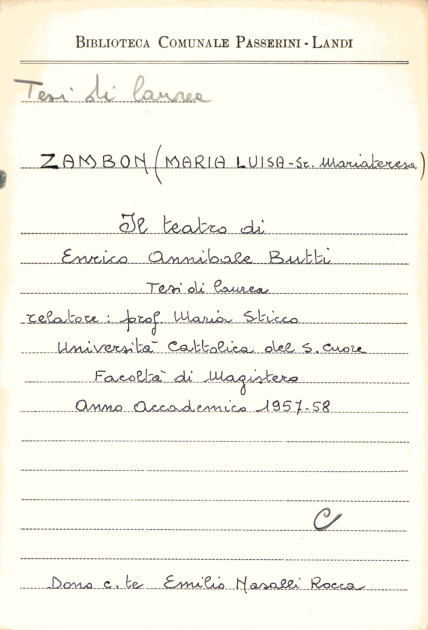 BIBLIOTECA COMUNALE PASSERINI-LANDI
Tesi di laurea
ZAMBON (MARIA LUISA-Sr. Mariateresa)
Il teatro di
Enrico Annibale Butti
Tesi di laurea
relatore: prof. Maria Sticco
Università Cattolica del S. Cuore
Facoltà di Magistero
Anno Accademico 1957-58
C
Dono c.te Emilio Nasalli Rocca